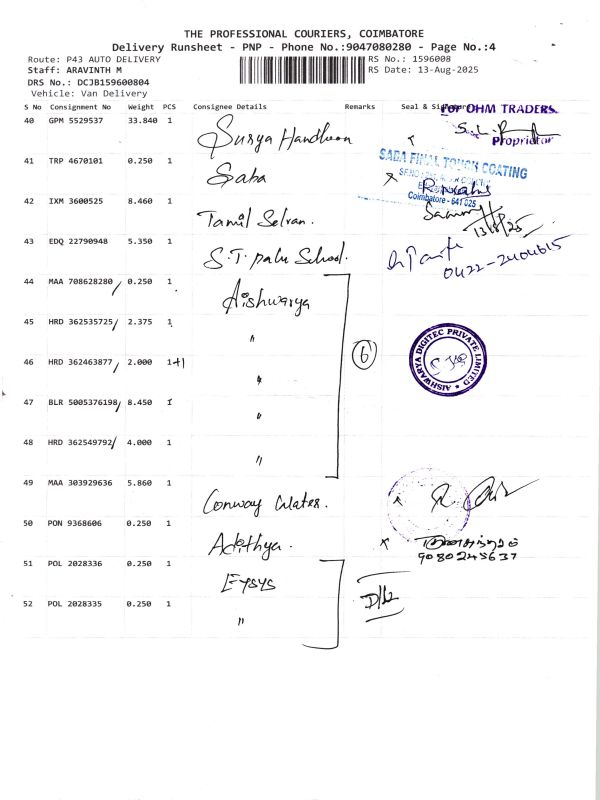 THE PROFESSIONAL COURIERS, COIMBATORE
Delivery Runsheet - PNP - Phone No.:9047080280 - Page No.:4
Route: P43 AUTO DELIVERY RS No.: 1596008
Staff: ARAVINTH M RS Date: 13-Aug-2025
DRS No.: DCJB159600804
Vehicle: Van Delivery
S No Consignment No Weight PCS Consignee Details Remarks Seal &
For OHM TRADERS.
40 GPM 5529537 33.840 1 Surya
Proprietor
41 TRP 4670101 0.250 1 Saba
SABA FINAL TOUCH COATING
Coimbatore - 641 025
42 IXM 3600525 8.460 1 Tamil Selvan.
13/8/25
43 EDQ 22790948 5.350 1 S.T. palu School.
0422-2404615
44 MAA 708628280/ 0.250 1 Aishwarya
45 HRD 362535725/ 2.375 1 "
46 HRD 362463877/ 2.000 1+1 " 6
AISHWARYA DIGITEC PRIVATE LIMITED
47 BLR 5005376198/ 8.450 1 "
48 HRD 362549792/ 4.000 1 "
49 MAA 303929636 5.860 1 Conway Water.
50 PON 9368606 0.250 1 Adithya.
9080245637
51 POL 2028336 0.250 1 Eysys
52 POL 2028335 0.250 1 "